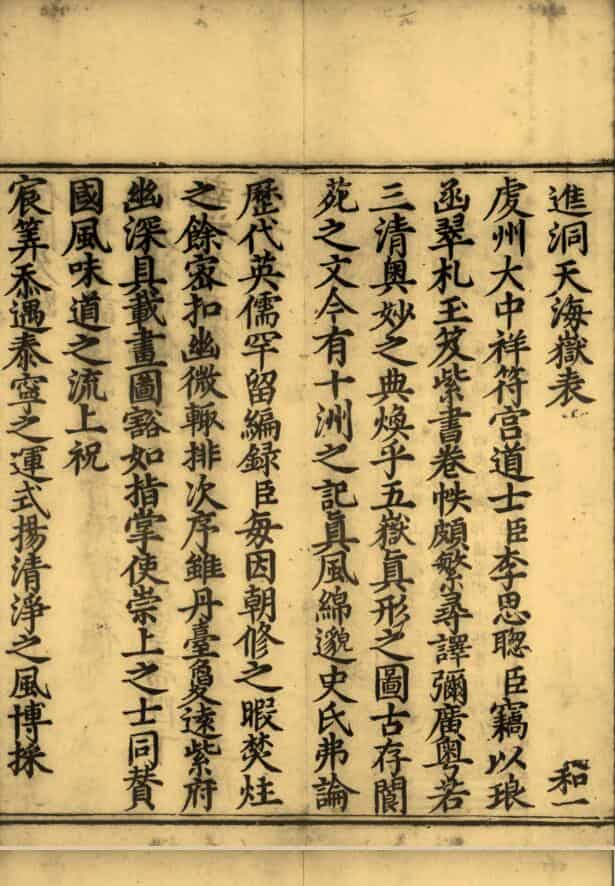 進洞天海嶽表
和一
虔州大中祥符宮道士臣李思聰臣竊以琅
函翠札玉芨紫書卷帙頗繁尋譯彌廣奧若
三清奧妙之典煥乎五嶽眞形之圖古存閬
苑之文今有十洲之記眞風綿邈史氏弗論
歷代英儒罕留編録臣每因朝修之暇焚炷
之餘宻扣幽微輙排次序雖丹臺敻遠紫府
幽深具載畫圖豁如指掌使崇上之士同賛
國風味道之流上祝
宸筭忝遇泰寧之運式揚清淨之風博採